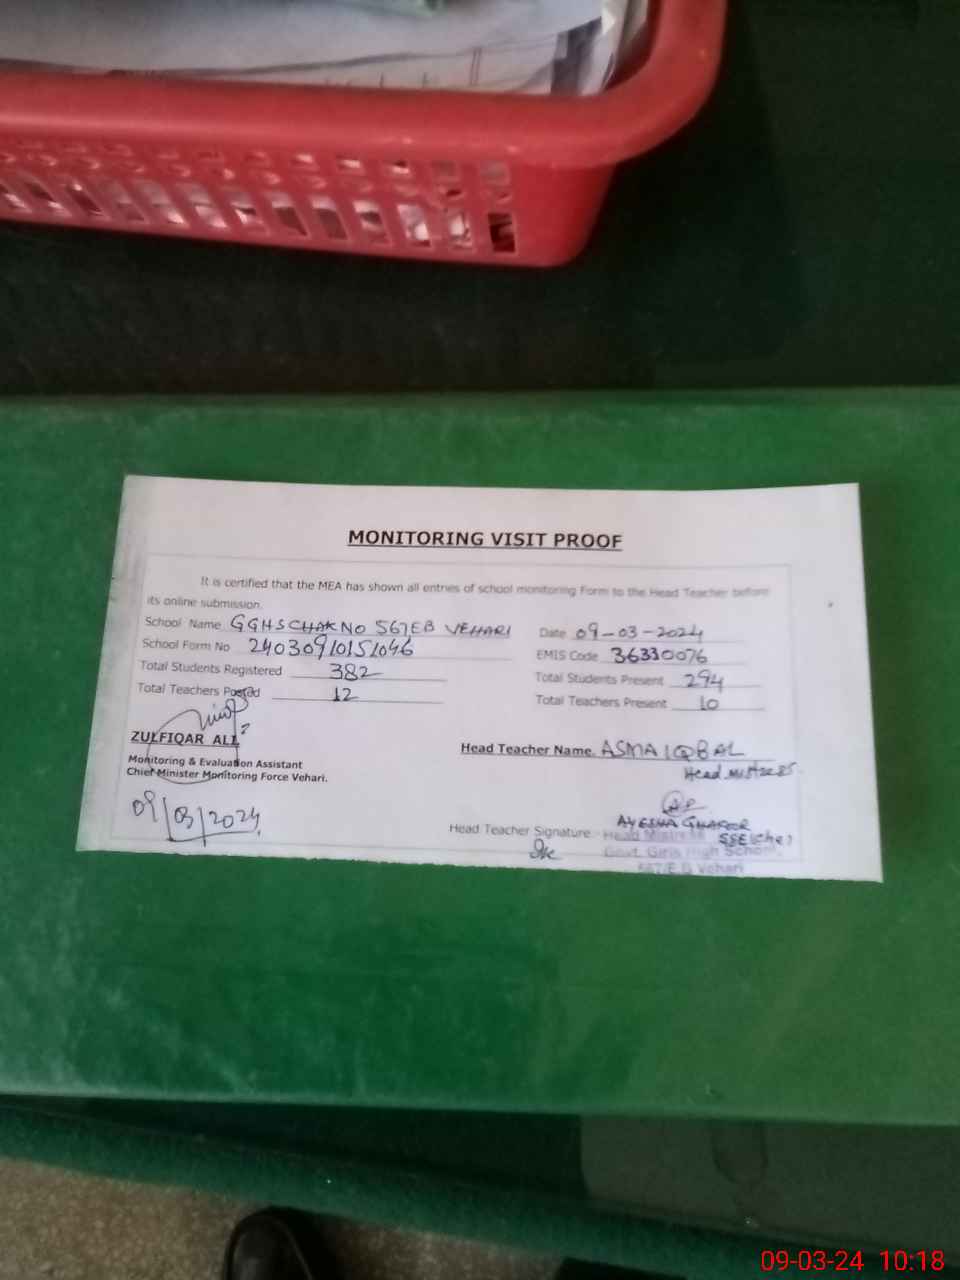 MONITORING VISIT PROOF
It is certified that the MEA has shown all entries of school monitoring Form to the Head Teacher before
its online submission.
School Name GGHS CHAK NO 567EB VEHARI
Date 09-03-2024
School Form No 24030910151046
EMIS Code 36330076
Total Students Registered 382
Total Students Present 294
Total Teachers Posted 12
Total Teachers Present 10
ZULFIQAR ALI
Monitoring & Evaluation Assistant
Chief Minister Monitoring Force Vehari.
09/03/2024
Head Teacher Name. ASMA IQBAL
Head Mistress.
AYESHA GHAFOOR
Head Teacher Signature
Head Mistress
Govt. Girls High School,
567/E.B Vehari
09-03-24 10:18